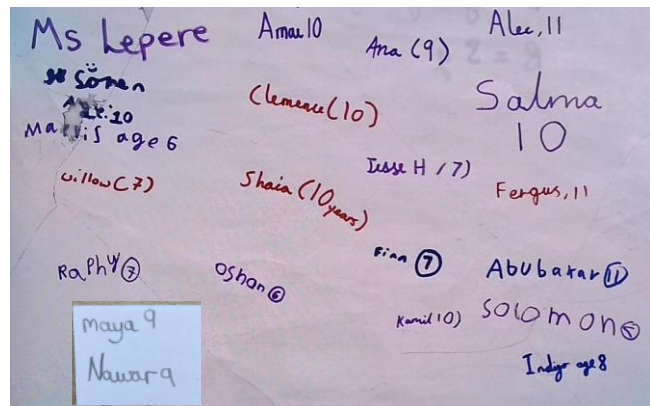 Ms Lepere
Amau 10
Ana (9)
Alec, 11
Sören
Age: 10
Marvis age 6
Clemence (10)
Salma
10
Willow (7)
Shaia (10 years)
Jesse H (7)
Fergus, 11
Raphy 7
Oshan 6
Finn 7
Abubakar 11
Kamil 10)
Solomon
Indigo age 8
maya 9
Nawar 9